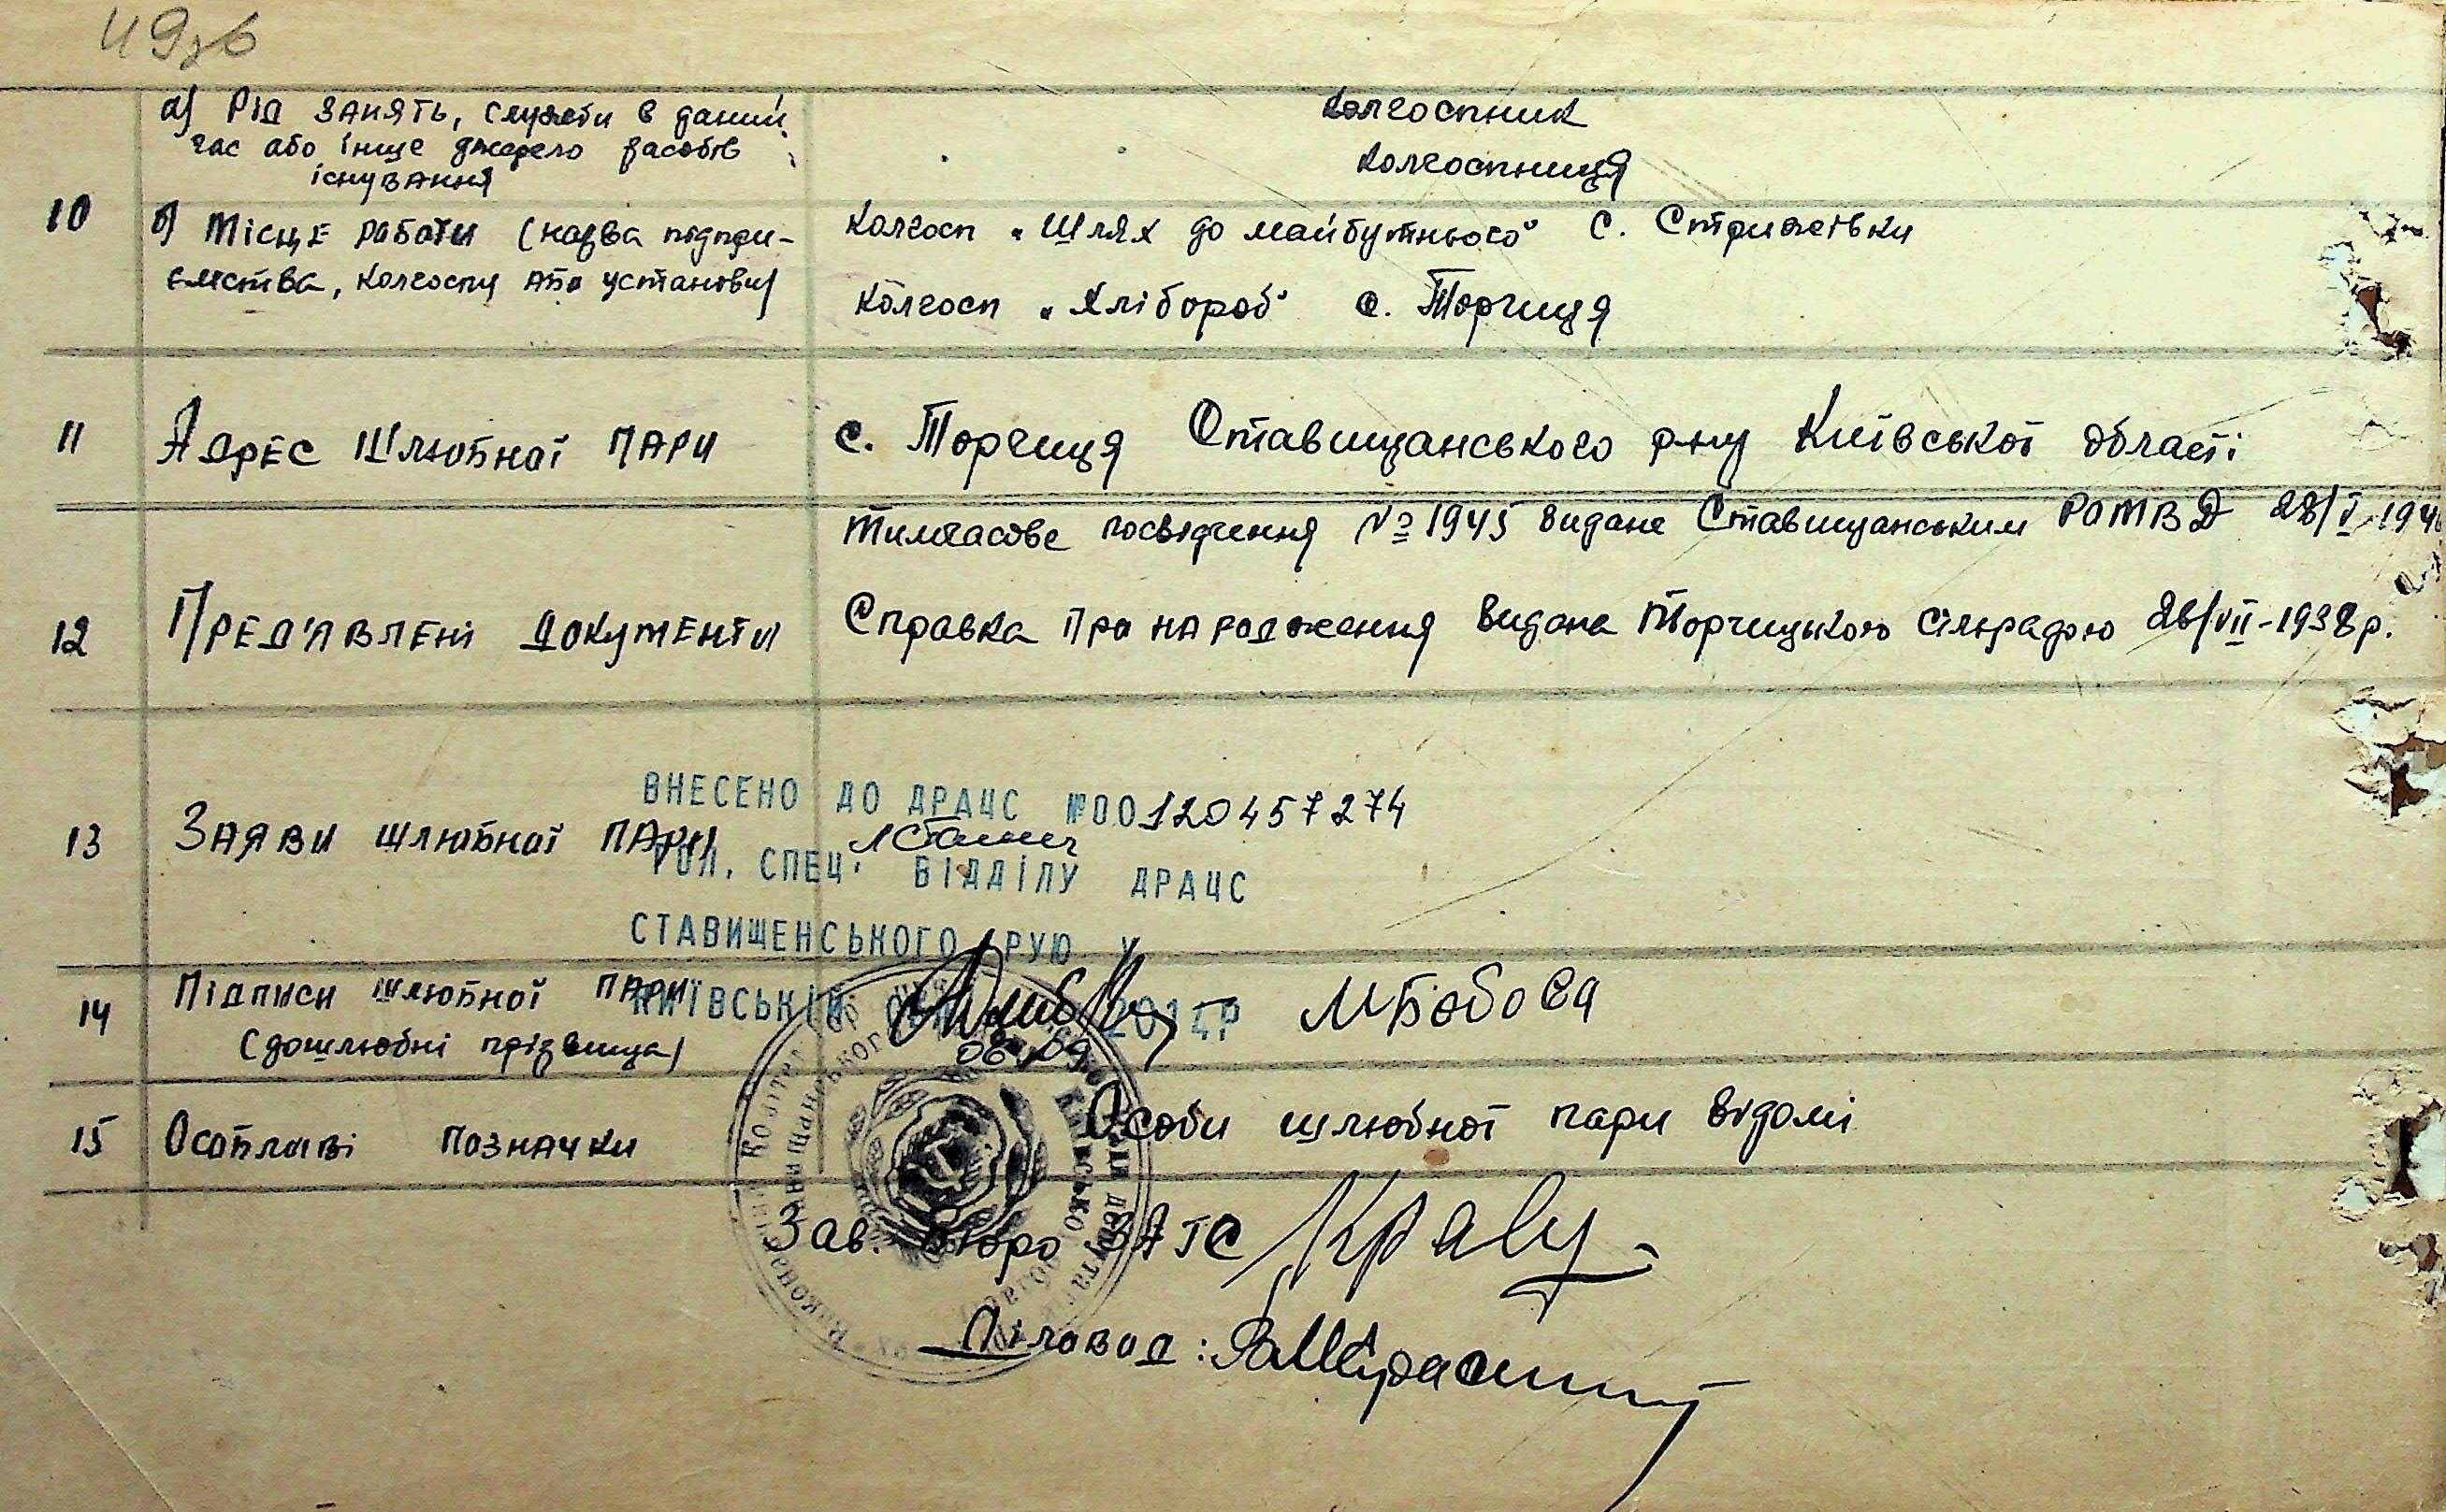 49зв
а) Рід занять, служби в даний
час або інше джерело засобів
існування
колгоспник
колгоспниця
10
б) Місце работи (назва підпри-
ємства, колгоспу або установи)
колгосп "Шлях до майбутнього" с. Стрижевівки
колгосп "Хлібороб" с. Торчиця
11 Адрес шлюбної пари
с. Торчиця Ставищанського р-ну Київської області
12 Пред'явлені документи
Тимчасове посвідчення № 1945 видане Ставищанським РОМВД 28/V 194
Справка про народження видана Торчицькою сільрадою 26/VII-1938р.
13 Заяви шлюбної пари
ВНЕСЕНО ДО ДРАЦС №00120457274
ГОЛ. СПЕЦ. ВІДДІЛУ ДРАЦС
СТАВИЩЕНСЬКОГО РУЮ У
КИЇВСЬКІЙ ОБЛ 201 Р
08 09
14 Підписи шлюбної пари
(дошлюбні прізвища)
15 Особливі позначки
Особи шлюбної пари відомі
Зав. Бюро ЗАГС
Діловод: